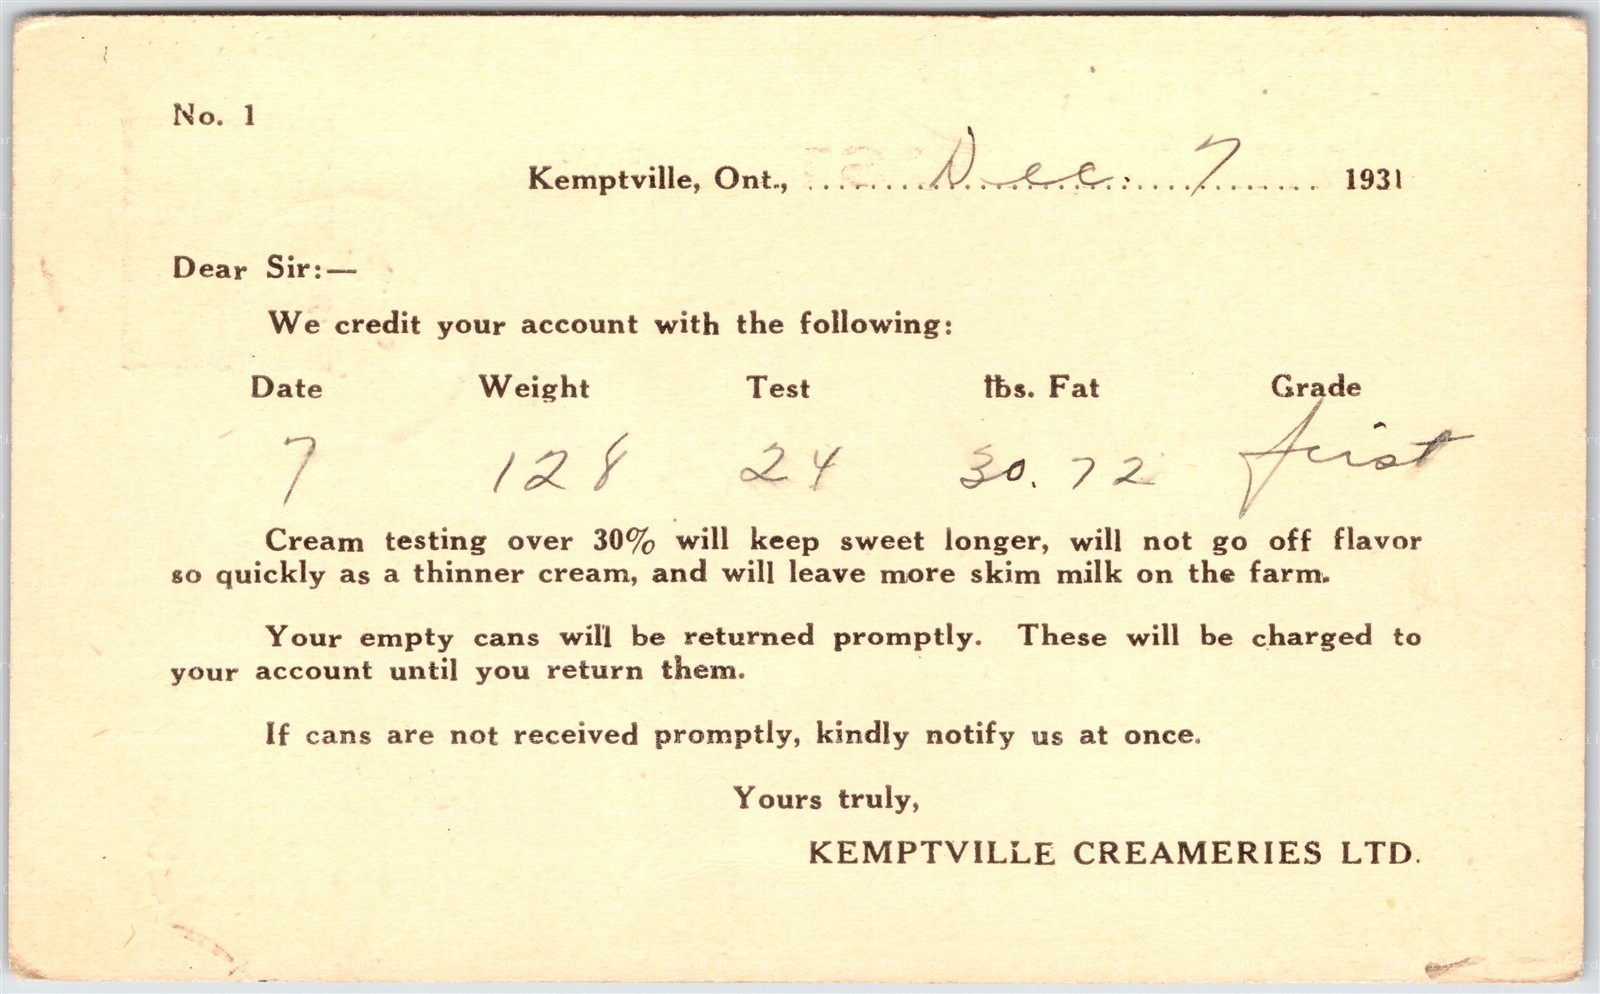 No. 1
Kemptville, Ont., Dec. 7 1931
Dear Sir:—
We credit your account with the following:
Date Weight Test lbs. Fat Grade
7 128 24 30.72 first
Cream testing over 30% will keep sweet longer, will not go off flavor
so quickly as a thinner cream, and will leave more skim milk on the farm.
Your empty cans will be returned promptly. These will be charged to
your account until you return them.
If cans are not received promptly, kindly notify us at once.
Yours truly,
KEMPTVILLE CREAMERIES LTD.